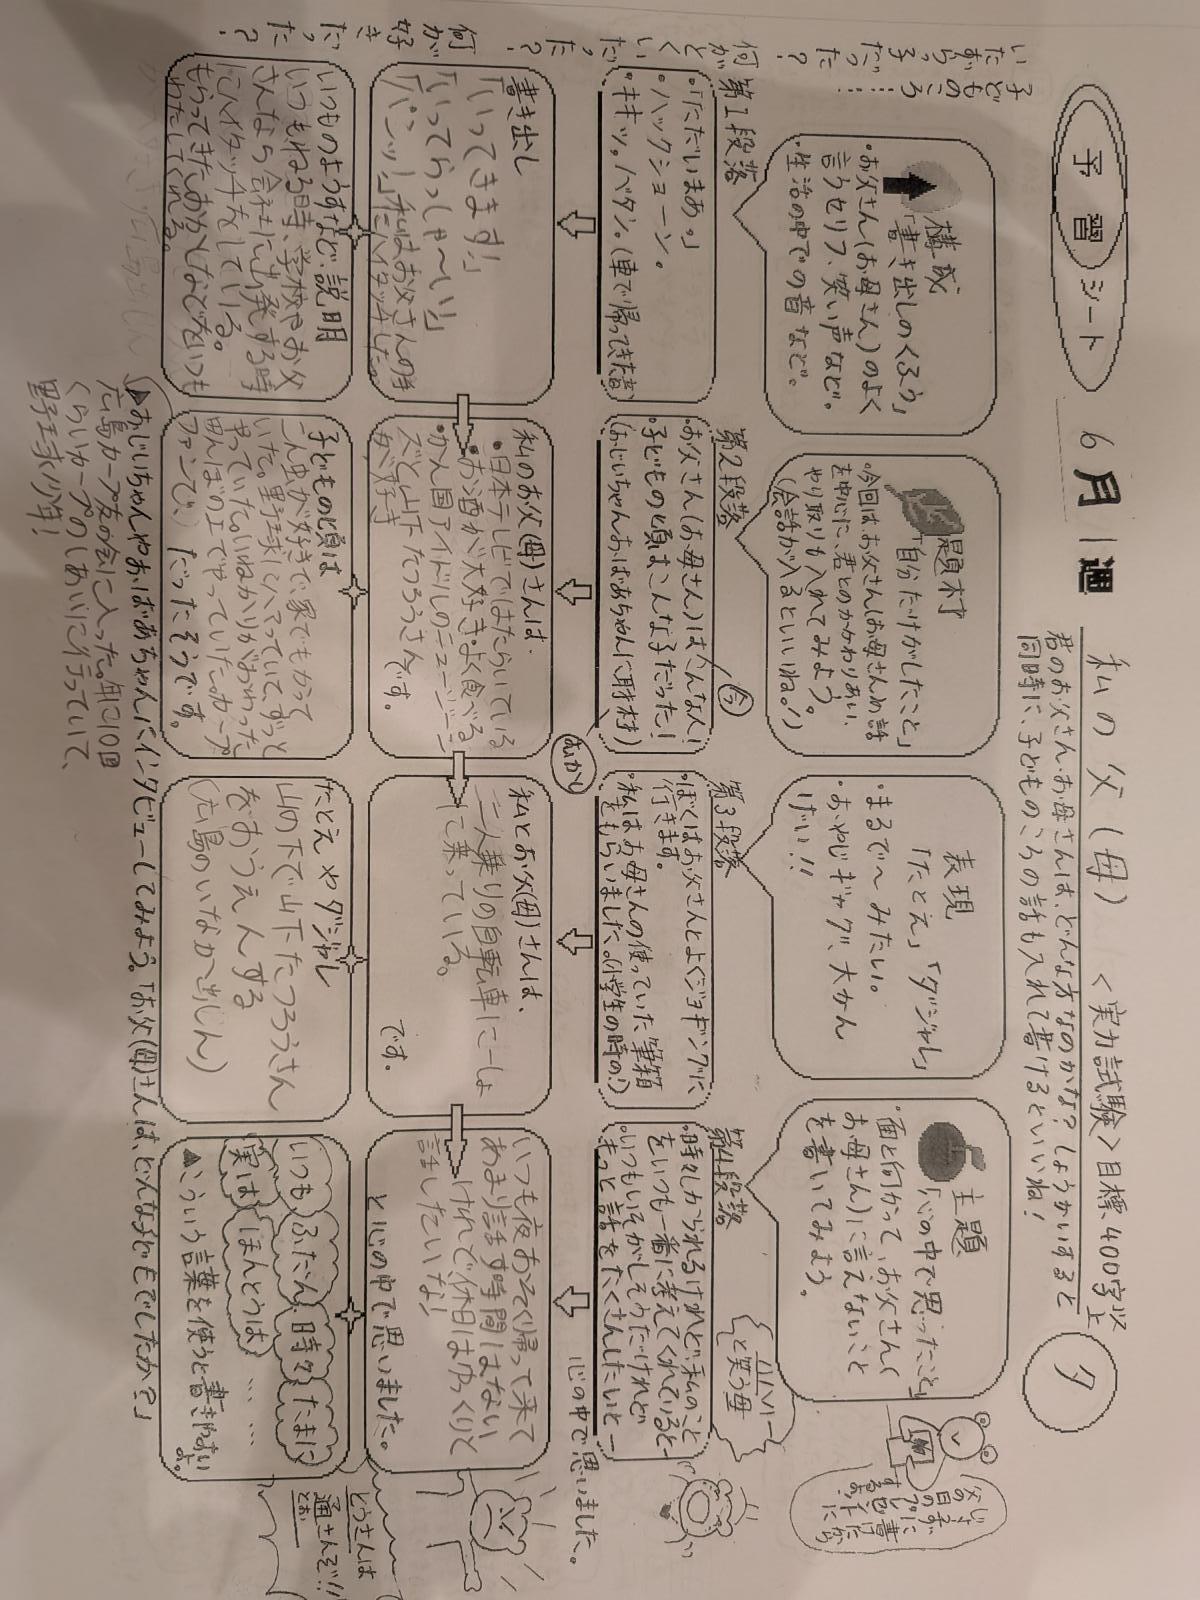 予習シート
6月1週
私の父(母)
<実力試験>目標400字以上
夕
君のお父さん、お母さんは、どんな方なのかな?しょうかいすると
同時に、子どものころの話も入れて書けるといいね!
構成
「書き出しのくふう」
・お父さん(お母さん)のよく
言うセリフ、笑い声など。
・生活の中での音など。
題材
「自分だけがしたこと」
・今回は、お父さんお母さんの話
を中心に、君とのかかわりあい、
やり取りも入れてみよう。
(会話が入るといいね。!)
表現
「たとえ」「ダジャレ」
・まるで〜みたい。
・おやじギャグ、大かん
げい!!
主題
「心の中で思ったこと」
・面と向かって、お父さん(
お母さん)に言えないこと
を書いてみよう。
第1段落
・「ただいまあ。」
・ハックショーン。
・キキッ。バタン。(車で帰ってきた音)
第2段落
・お父さん(お母さん)はこんな人!
今
・子どもの頃はこんな子だった!
むかし
(おじいちゃんおばあちゃんに取材)
第3段落
・ぼくはお父さんとよくジョギングに
行きます。
・私はお母さんの使っていた筆箱
をもらいました。(小学生の時の!)
第4段落
・時々しかられるけれど、私のこと
をいつも一番に考えてくれていると—
・いつもいそがしそうだけれど
もっと話をたくさんしたいと—
心の中で思いました。
と笑う母
書き出し
「いってきます!」
「いってらっしゃ〜い!」
「パンッ!」私はお父さんの手
にハイタッチした。
私のお父(母)さんは、
・日本テレビではたらいている
・お酒が大好き・よく食べる
・かん国アイドルのニュージーン
ズと山下たつろうさん
が好き
です。
私とお父(母)さんは、
二人乗りの自転車にいっしょ
に乗っている。
です。
いつも夜おそく帰って来て
あまり話す時間はない
けれど休日はゆっくりと
話したいな!
と心の中で思いました。
いつものようすなど、説明
いつもねる時、学校やお父
さんなら会社に出発する時
にハイタッチをしている。
もらってきたおかしなどをいつも
わたしてくれる。
子どもの頃は
こん虫が好きで、家でもかって
いた。野球にハマっていて、ずっと
やっていた(いねかりがおわった
田んぼの上でやっていた。カープ
ファンで、)
だったそうです。
たとえやダジャレ
山の下で山下たつろうさん
をおうえんする
(広島のいなか出しん)
いつも
ふだん
時々
たまに
実は
ほんとうは
……
▲こういう言葉を使うと書きやすい
よ。
▲おじいちゃんやおばあちゃんにインタビューしてみよう。「お父(母)さんは、どんな子どもでしたか?」
広島カープ友の会に入った。年に10回
くらいカープのしあいに行っていて、
野球少年!
子どものころ……
いたずらっ子だった?
何がとくいだった?
何が好きだった?
とうさんは
通さんぞ!!